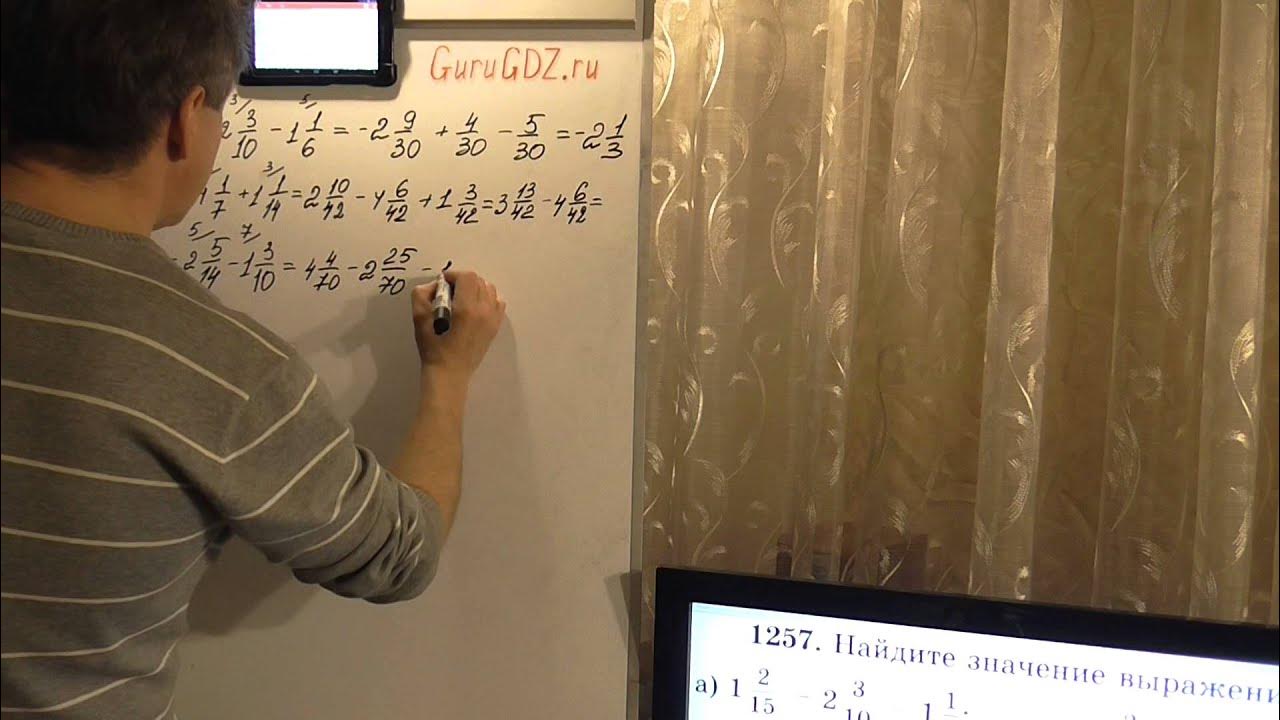 GuruGDZ.ru
3/ 5/
2 3/10 - 1 1/6 = -2 9/30 + 4/30 - 5/30 = -2 1/3
3/
4 1/7 + 1 1/14 = 2 10/42 - 4 6/42 + 1 3/42 = 3 13/42 - 4 6/42 =
5/ 7/
- 2 5/14 - 1 3/10 = 4 4/70 - 2 25/70 -
1257. Найдите значение выражени
а) 1 2/15 - 2 3/10 - 1 1